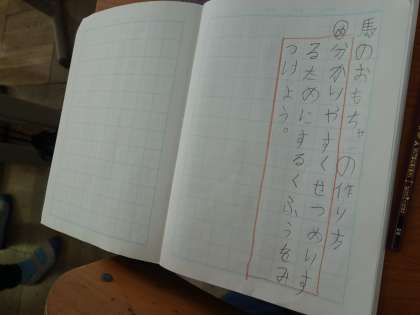 馬のおもちゃの作り方
め分かりやすくせつめいす
るためにするくふうをみ
つけよう。